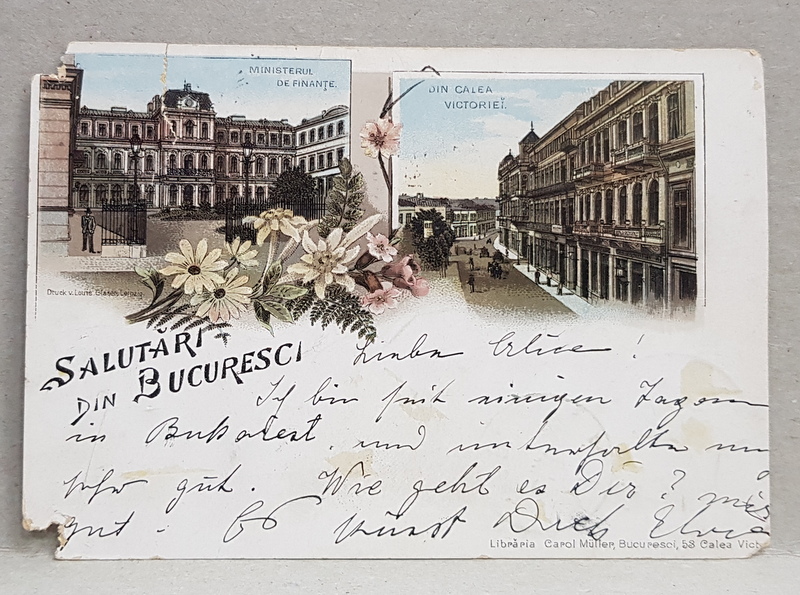 MINISTERUL
DE FINANŢE.
DIN CALEA
VICTORIEĬ.
Druck v. Louis Glaser, Leipzig
SALUTĂRI
DIN BUCURESCI
Liebe Alice!
Ich bin seit einigen Tagen
in Bukarest, und unterhalte
sehr gut. Wie geht es Dir? mir
gut. Es küsst Dich
Librăria Carol Müller, Bucuresci, 53 Calea Vict